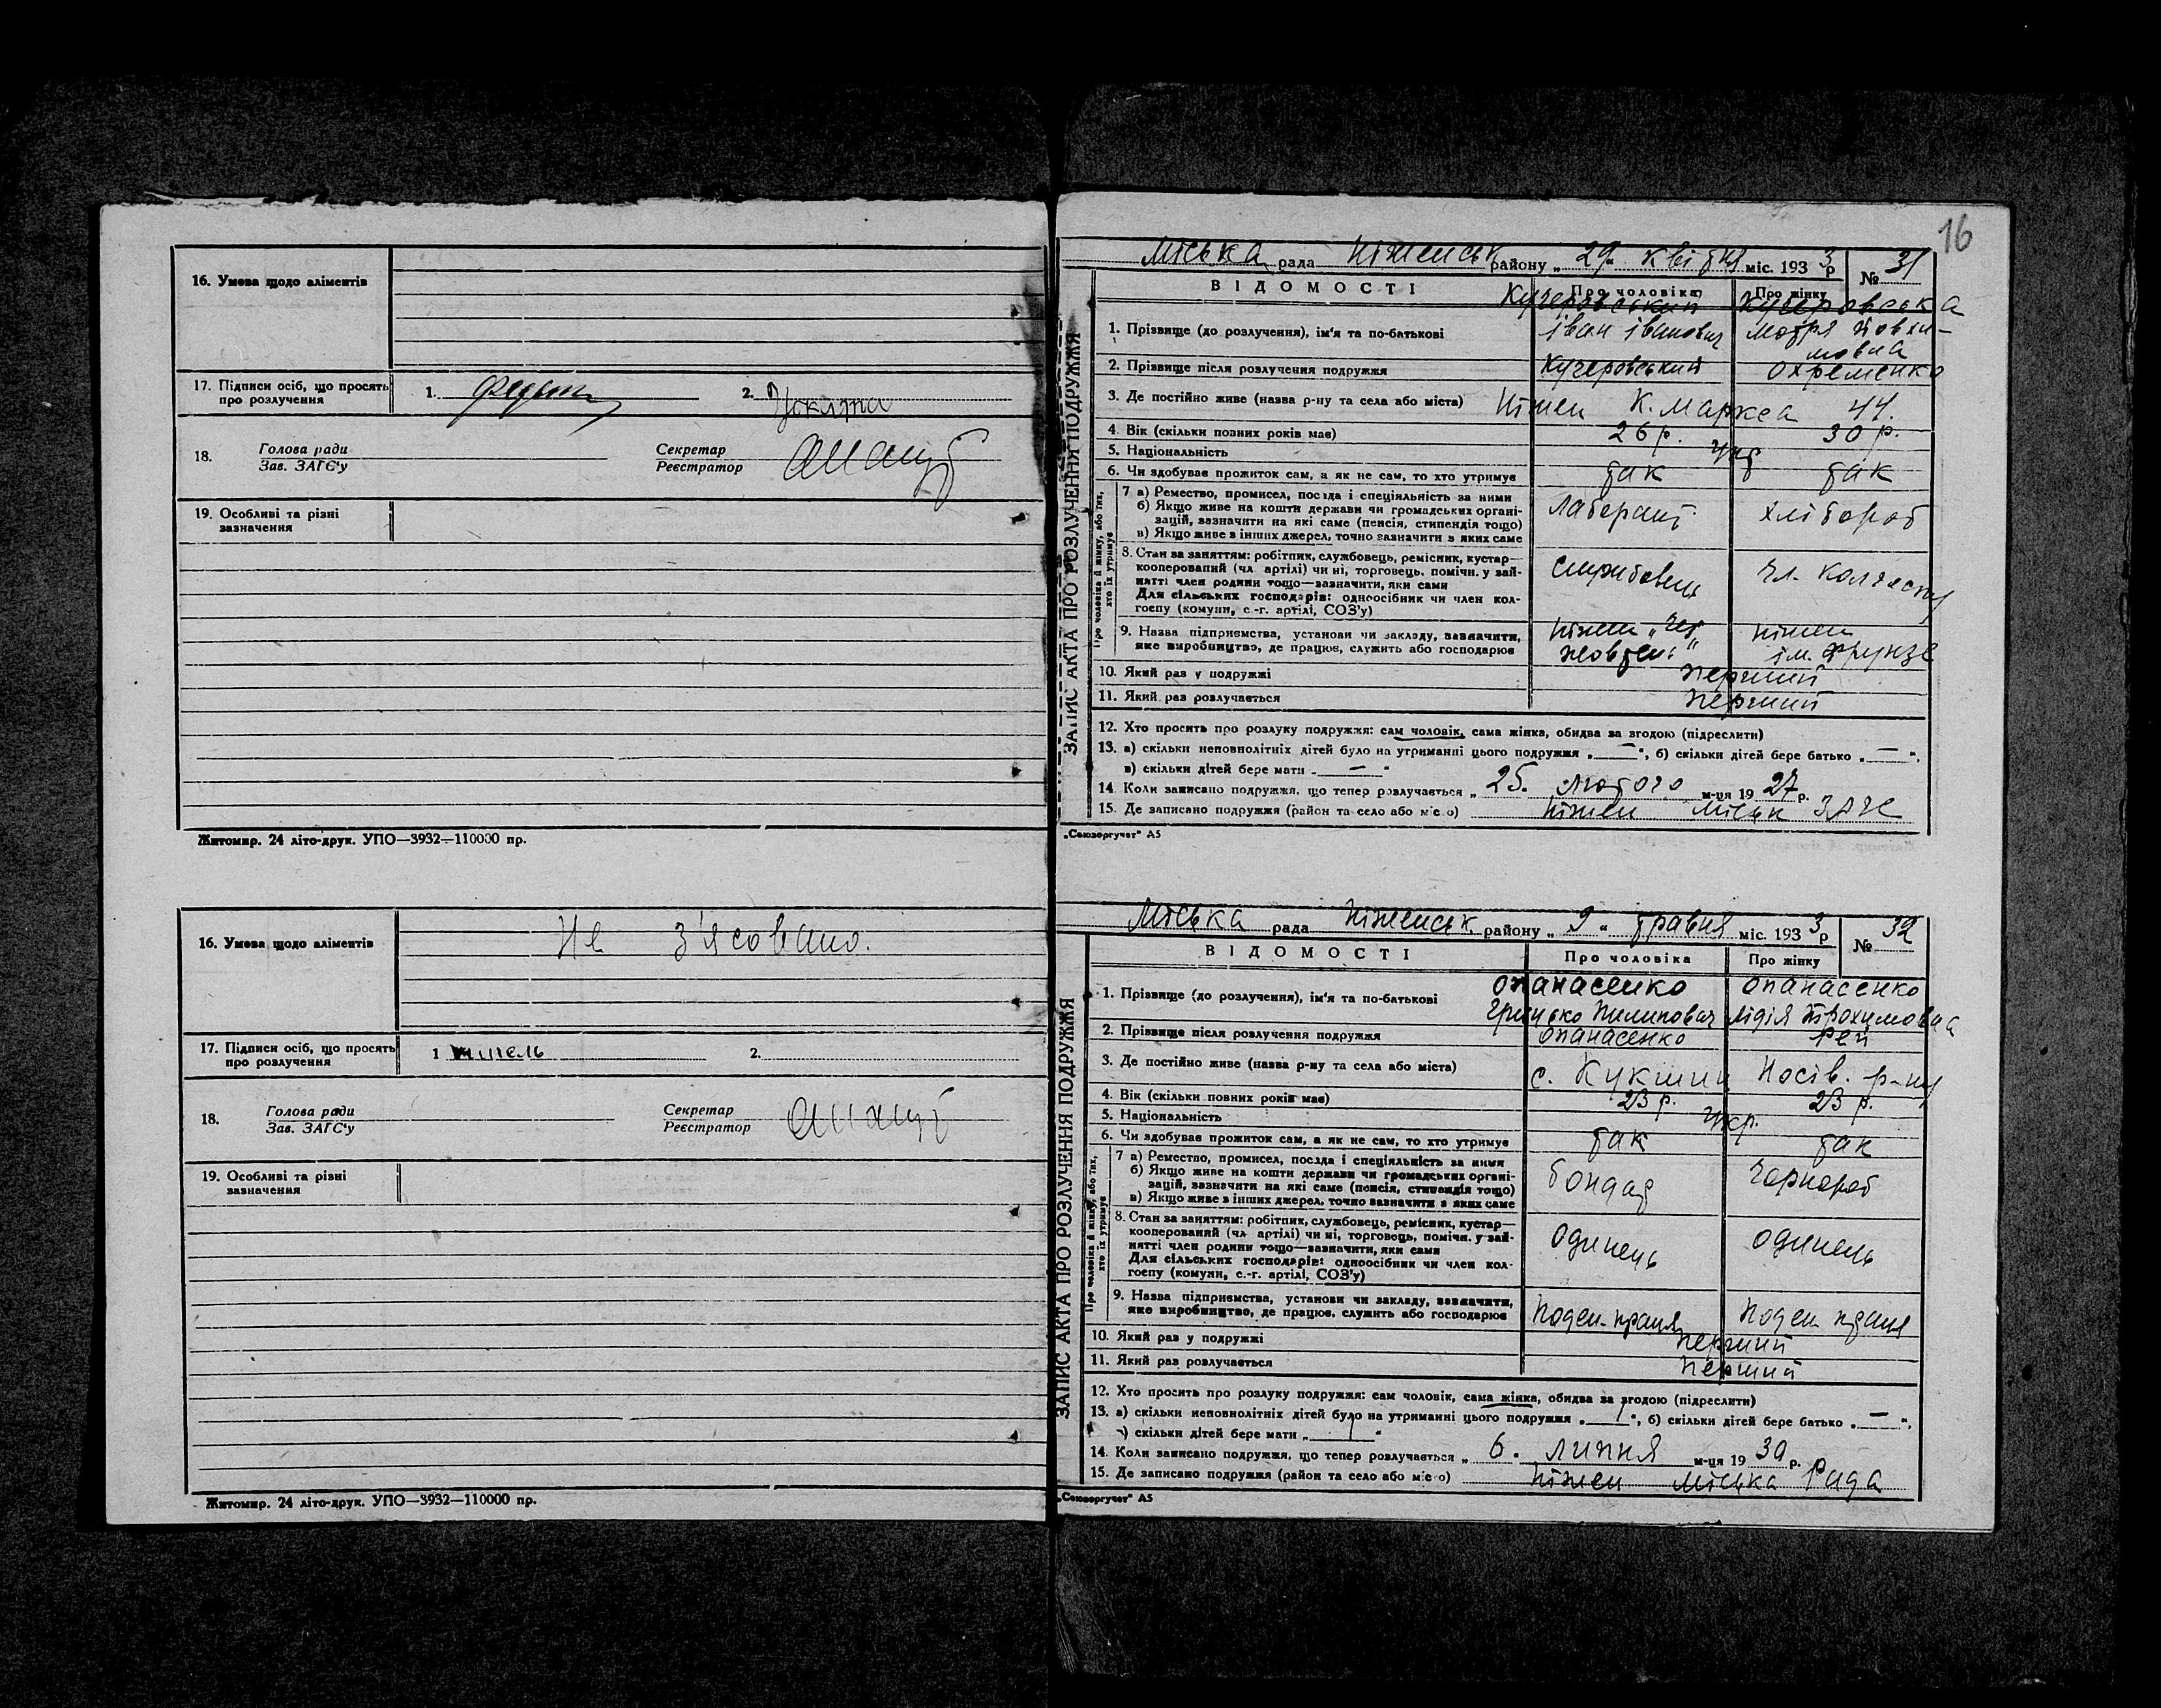 16. Умова щодо аліментів
17. Підписи осіб, що просять
про розлучення
1.
2.
18.
Голова ради
Зав. ЗАГС'у
Секретар
Реєстратор
19. Особливі та різні
зазначення
Житомир. 24 літо-друк. УПО—3932—110000 пр.
16. Умова щодо аліментів
Не з'ясовано.
17. Підписи осіб, що просять
про розлучення
1
2.
18.
Голова ради
Зав. ЗАГС'у
Секретар
Реєстратор
19. Особливі та різні
зазначення
Житомир. 24 літо-друк. УПО—3932—110000 пр.
16
ЗАПИС АКТА ПРО РОЗЛУЧЕННЯ ПОДРУЖЖЯ
Міська рада Ніженськ району „ 29 " квітня міс. 193 3 р № 31
ВІДОМОСТІ Про чоловіка Про жінку
Кучеровський Кучеровська
1. Прізвище (до розлучення), ім'я та по-батькові іван іванович Мотря Йовхи-
мовна
2. Прізвище після розлучення подружжя Кучеровський Охременко
3. Де постійно живе (назва р-ну та села або міста) Ніжен К. Маркса 44.
4. Вік (скільки повних років має) 26 р. 30 р.
5. Національність Укр
6. Чи здобуває прожиток сам, а як не сам, то хто утримує так так
Про чоловіка й жінку, або тих,
хто їх утримує
7 а) Ремество, промисел, посада і спеціяльність за ними
б) Якщо живе на кошти держави чи громадських органі-
зацій, зазначити на які саме (пенсія, стипендія тощо)
в) Якщо живе з інших джерел, точно зазначити з яких саме
лаберант хлібороб
8. Стан за заняттям: робітник, службовець, ремісник, кустар—
кооперований (чл. артілі) чи ні, торговець, помічн. у зай-
нятті член родини тощо—зазначити, яки сами
Для сільських господарів: одноосібник чи член кол-
госпу (комуни, с.-г. артілі, СОЗ'у)
службовець чл. колгоспу
9. Назва підприємства, установи чи закладу, зазначити,
яке виробництво, де працює, служить або господарює
Ніжен „Чер Ніжен
жовтень" ім. Фрунзе
10. Який раз у подружжі перший
11. Який раз розлучається перший
12. Хто просить про розлуку подружжя: сам чоловік, сама жінка, обидва за згодою (підреслити)
13. а) скільки неповнолітніх дітей було на утриманні цього подружжя „ — ", б) скільки дітей бере батько „ — ",
в) скільки дітей бере мати „ — "
14. Коли записано подружжя, що тепер розлучається „ 25. лютого м-ця 19 27 р.
15. Де записано подружжя (район та село або місто) Ніжен міськ ЗАГС
„Союзоргучет" А5
ЗАПИС АКТА ПРО РОЗЛУЧЕННЯ ПОДРУЖЖЯ
Міська рада Ніженськ. району „ 9 " травня міс. 193 3 р № 32
ВІДОМОСТІ Про чоловіка Про жінку
1. Прізвище (до розлучення), ім'я та по-батькові Опанасенко Опанасенко
Грицько Пилипович Лідія Трохимовна
2. Прізвище після розлучення подружжя Опанасенко Рей
3. Де постійно живе (назва р-ну та села або міста) с. Кукшин Носів. р-ну
4. Вік (скільки повних років має) 23 р. 23 р.
5. Національність Укр.
6. Чи здобуває прожиток сам, а як не сам, то хто утримує так так
Про чоловіка й жінку, або тих,
хто їх утримує
7 а) Ремество, промисел, посада і спеціяльність за ними
б) Якщо живе на кошти держави чи громадських органі-
зацій, зазначити на які саме (пенсія, стипендія тощо)
в) Якщо живе з інших джерел, точно зазначити з яких саме
бондар Чорнороб
8. Стан за заняттям: робітник, службовець, ремісник, кустар—
кооперований (чл. артілі) чи ні, торговець, помічн. у зай-
нятті член родини тощо—зазначити, яки сами
Для сільських господарів: одноосібник чи член кол-
госпу (комуни, с.-г. артілі, СОЗ'у)
Одинець одинець
9. Назва підприємства, установи чи закладу, зазначити,
яке виробництво, де працює, служить або господарює
Поден. праця Поден праця
10. Який раз у подружжі перший
11. Який раз розлучається перший
12. Хто просить про розлуку подружжя: сам чоловік, сама жінка, обидва за згодою (підреслити)
13. а) скільки неповнолітніх дітей було на утриманні цього подружжя „ 1 ", б) скільки дітей бере батько „ — ",
в) скільки дітей бере мати „ 1 "
14. Коли записано подружжя, що тепер розлучається „ 6. липня м-ця 19 30 р.
15. Де записано подружжя (район та село або місто) Ніжен міська Рада
„Союзоргучет" А5